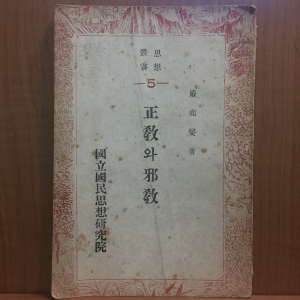 思想
叢書
—5—
嚴堯燮 著
正敎와 邪敎
國立國民思想硏究院